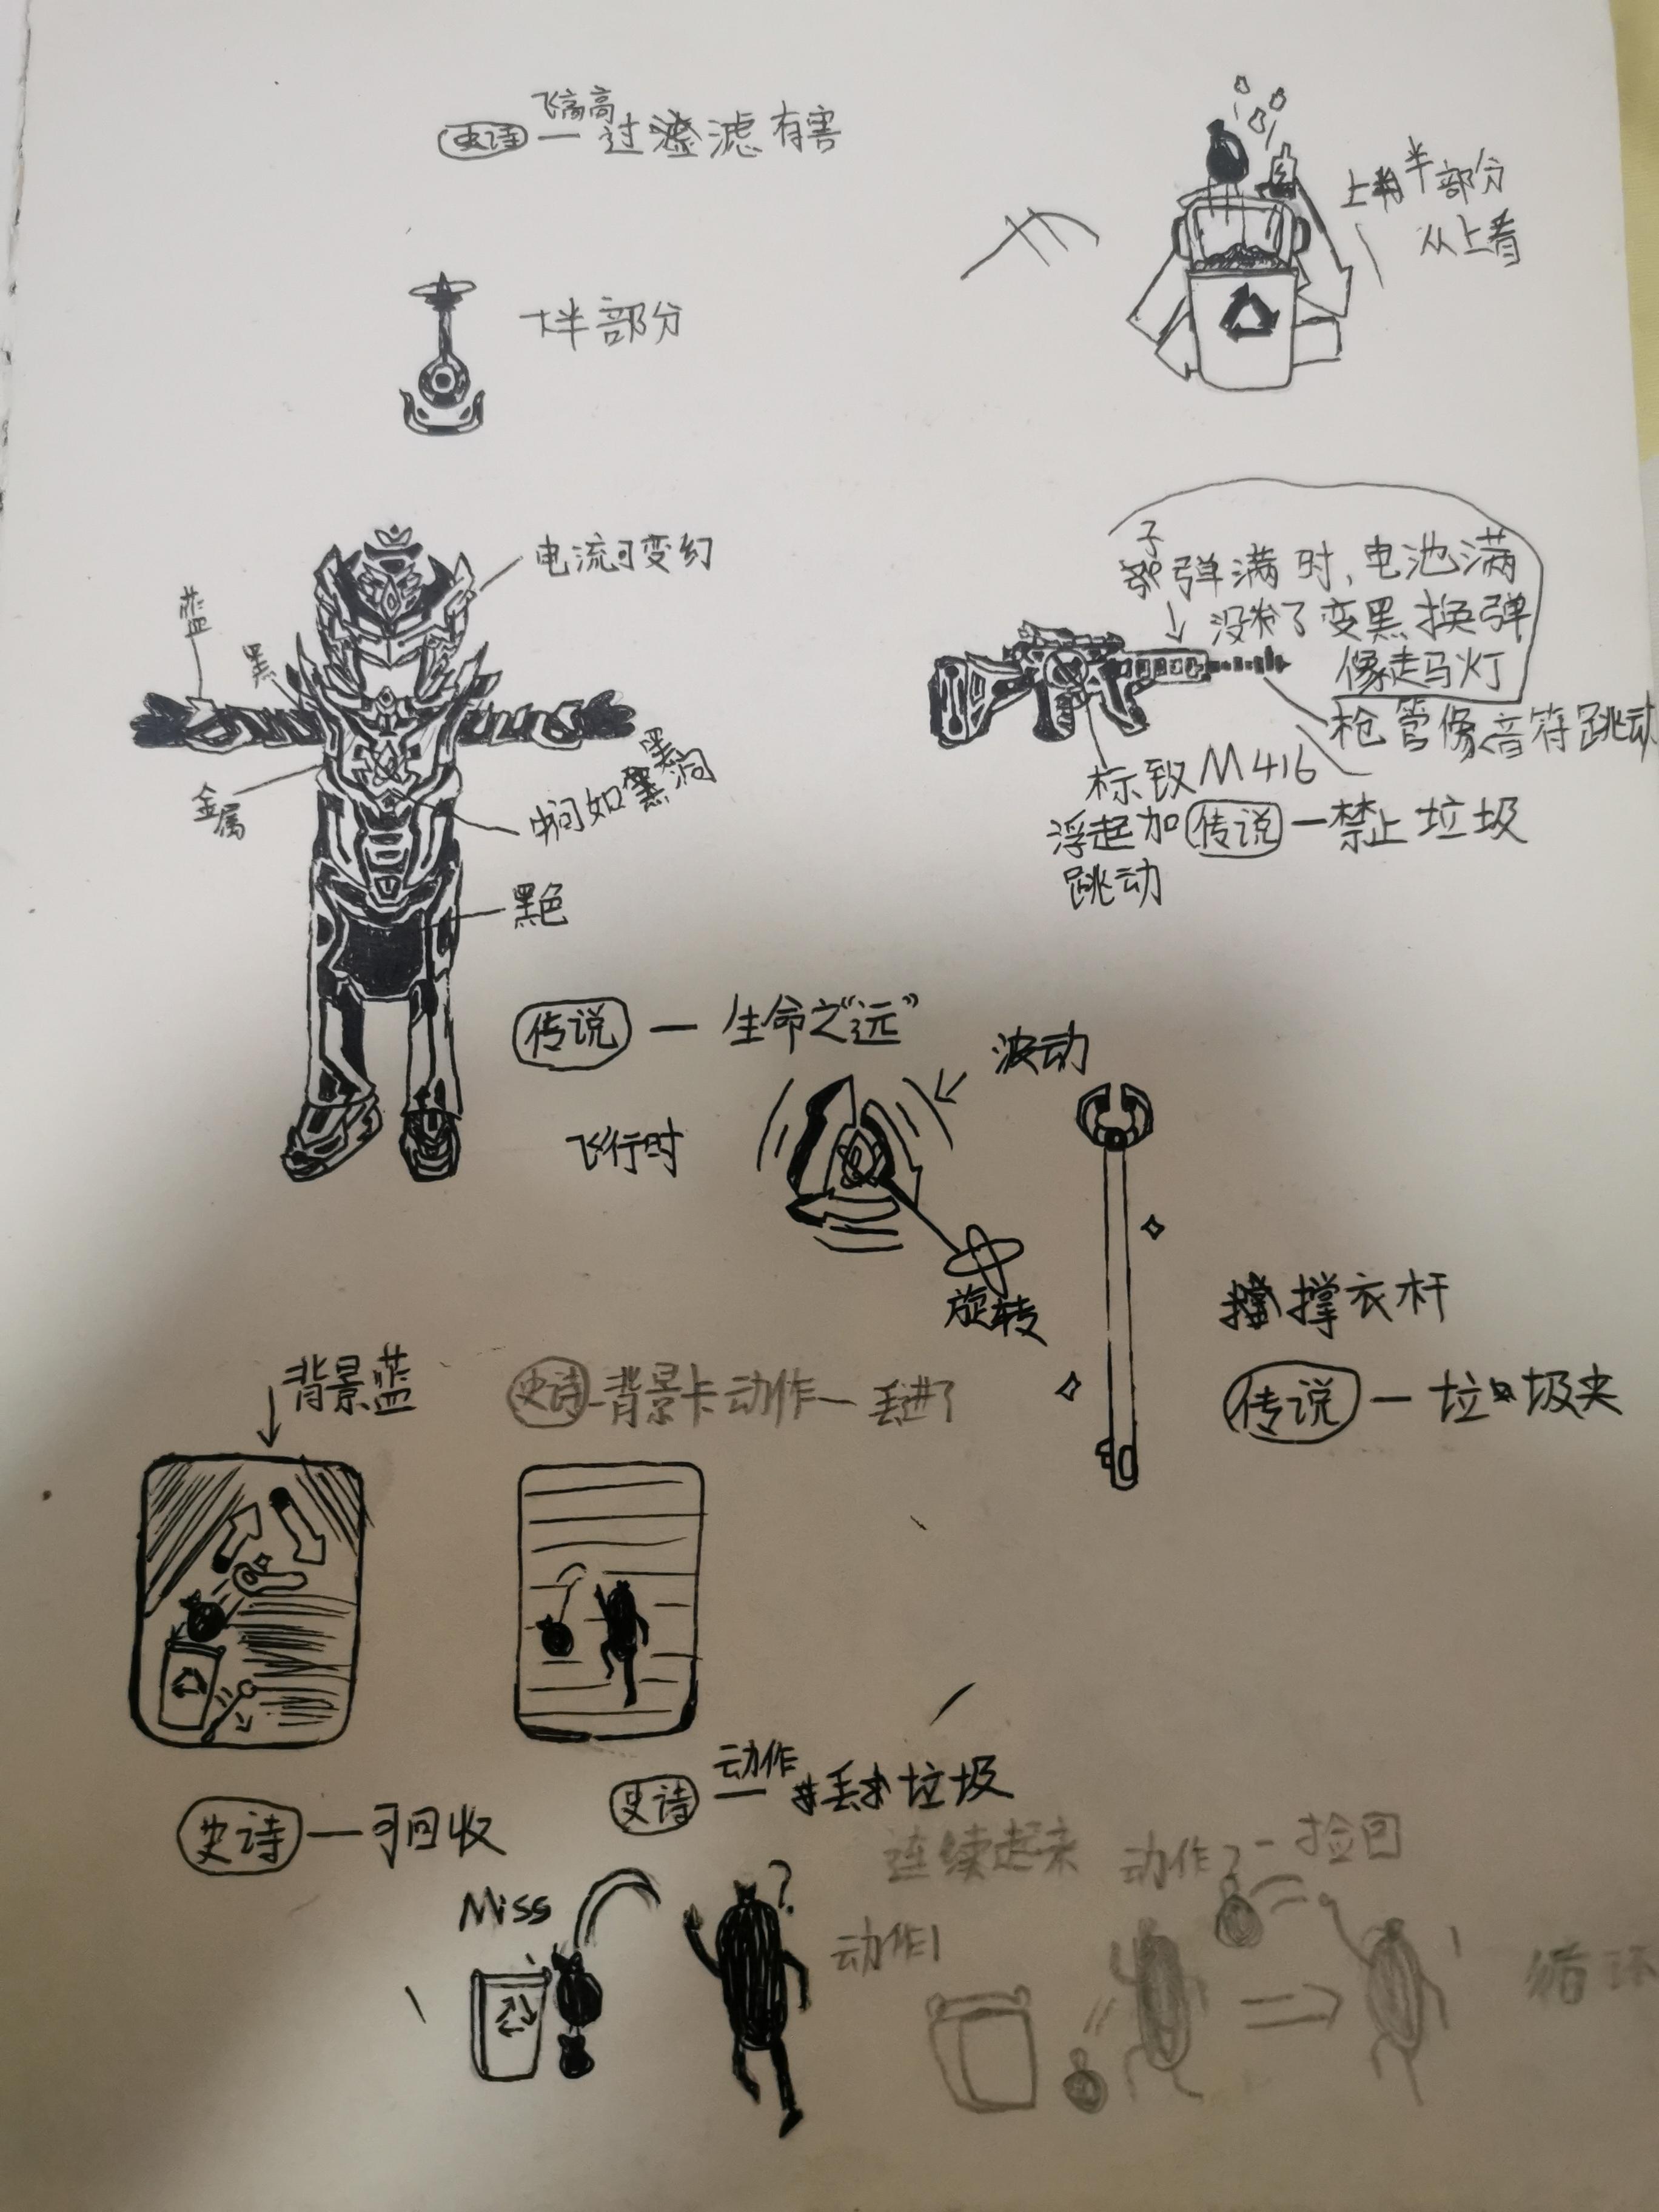 飞高高
史诗一过滤有害
上半部分
从上看
下半部分
电流可变幻
蓝
黑
金属
中间如黑洞
黑色
子弹满时,电池满
没有了变黑 换弹
像走马灯
枪管像音符跳动
标致M416
浮起加
跳动
传说一禁止垃圾
传说一生命之“远”
波动
飞行时
旋转
撑衣杆
传说一垃圾夹
背景蓝
史诗一背景卡动作一丢进了
史诗一可回收
动作
史诗一丢垃圾
Miss
?
连续起来
动作1
动作2-捡回
循环